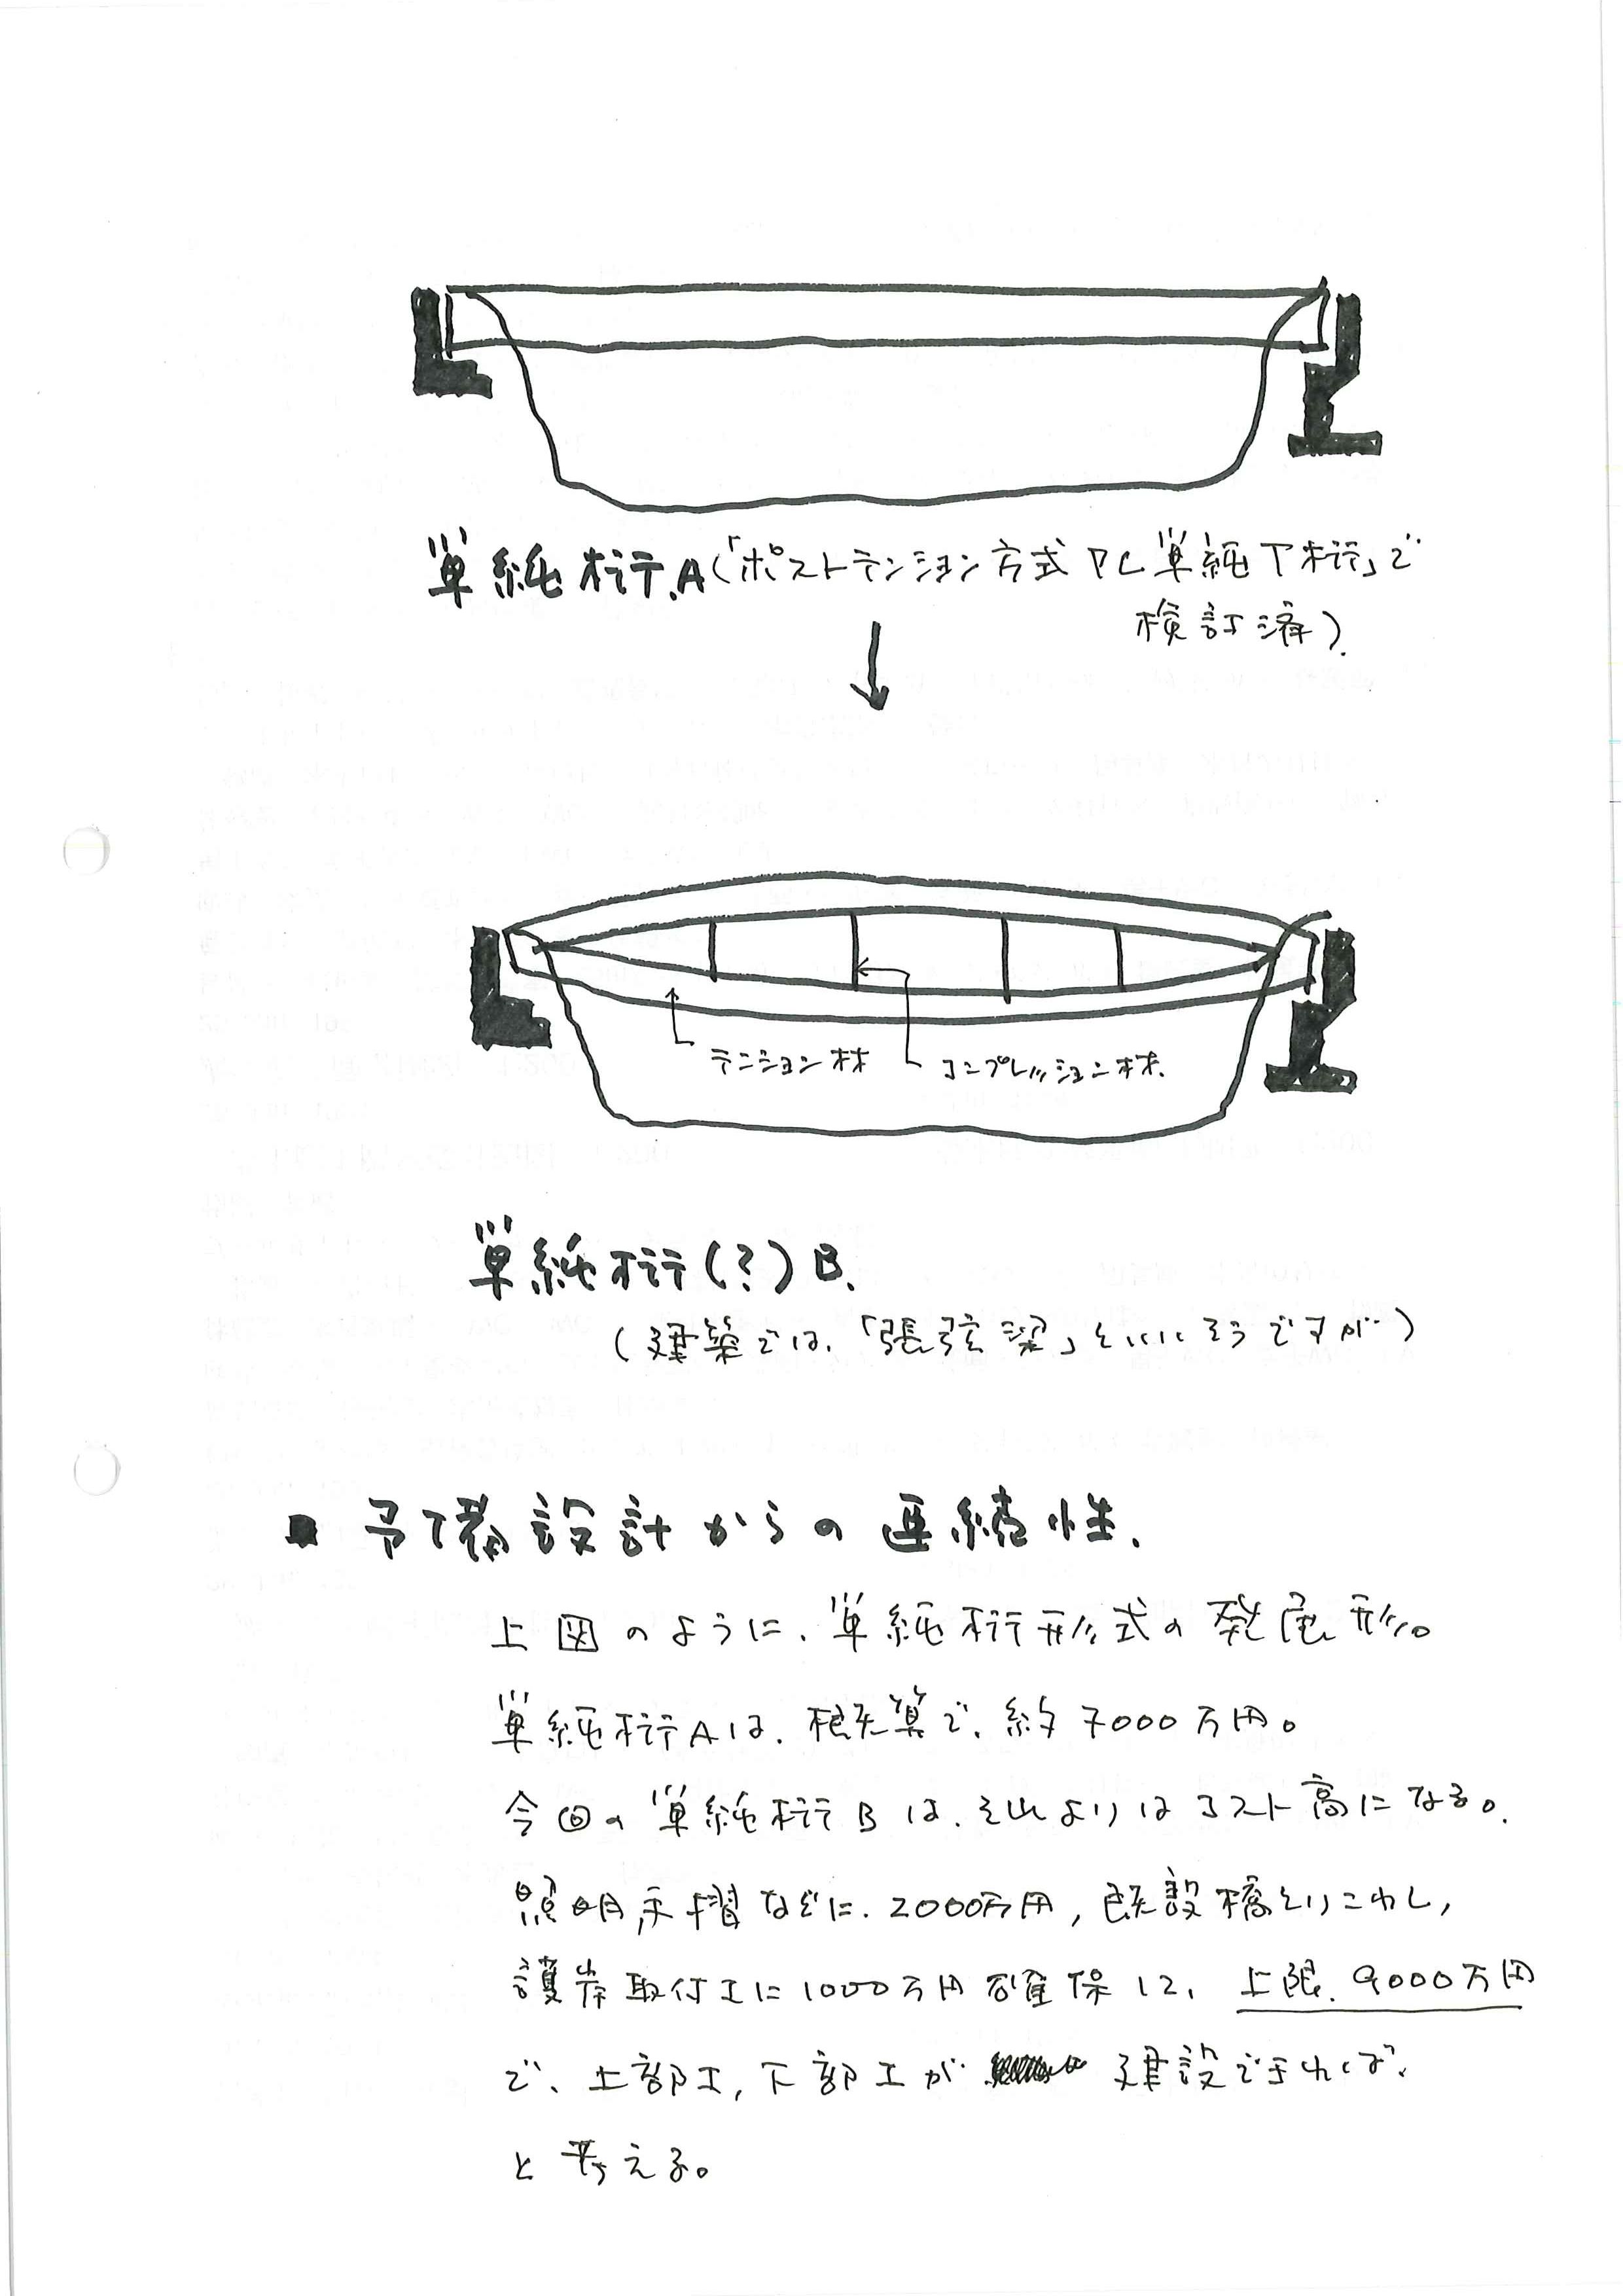 単純桁A(「ポストテンション方式PC単純T桁」で
検討済).
テンション材
コンプレッション材.
単純桁(?)B.
(建築では、「張弦梁」というそうですが)
■予備設計からの連続性.
上図のように、単純桁形式の発展形。
単純桁Aは、概算で、約7000万円。
今回の単純桁Bは、それよりはコスト高になる。
照明、手摺などに、2000万円, 既設橋とりこわし,
護岸取付工に1000万円確保して、上限、9000万円
で、上部工, 下部工が 建設できれば、
と考える。